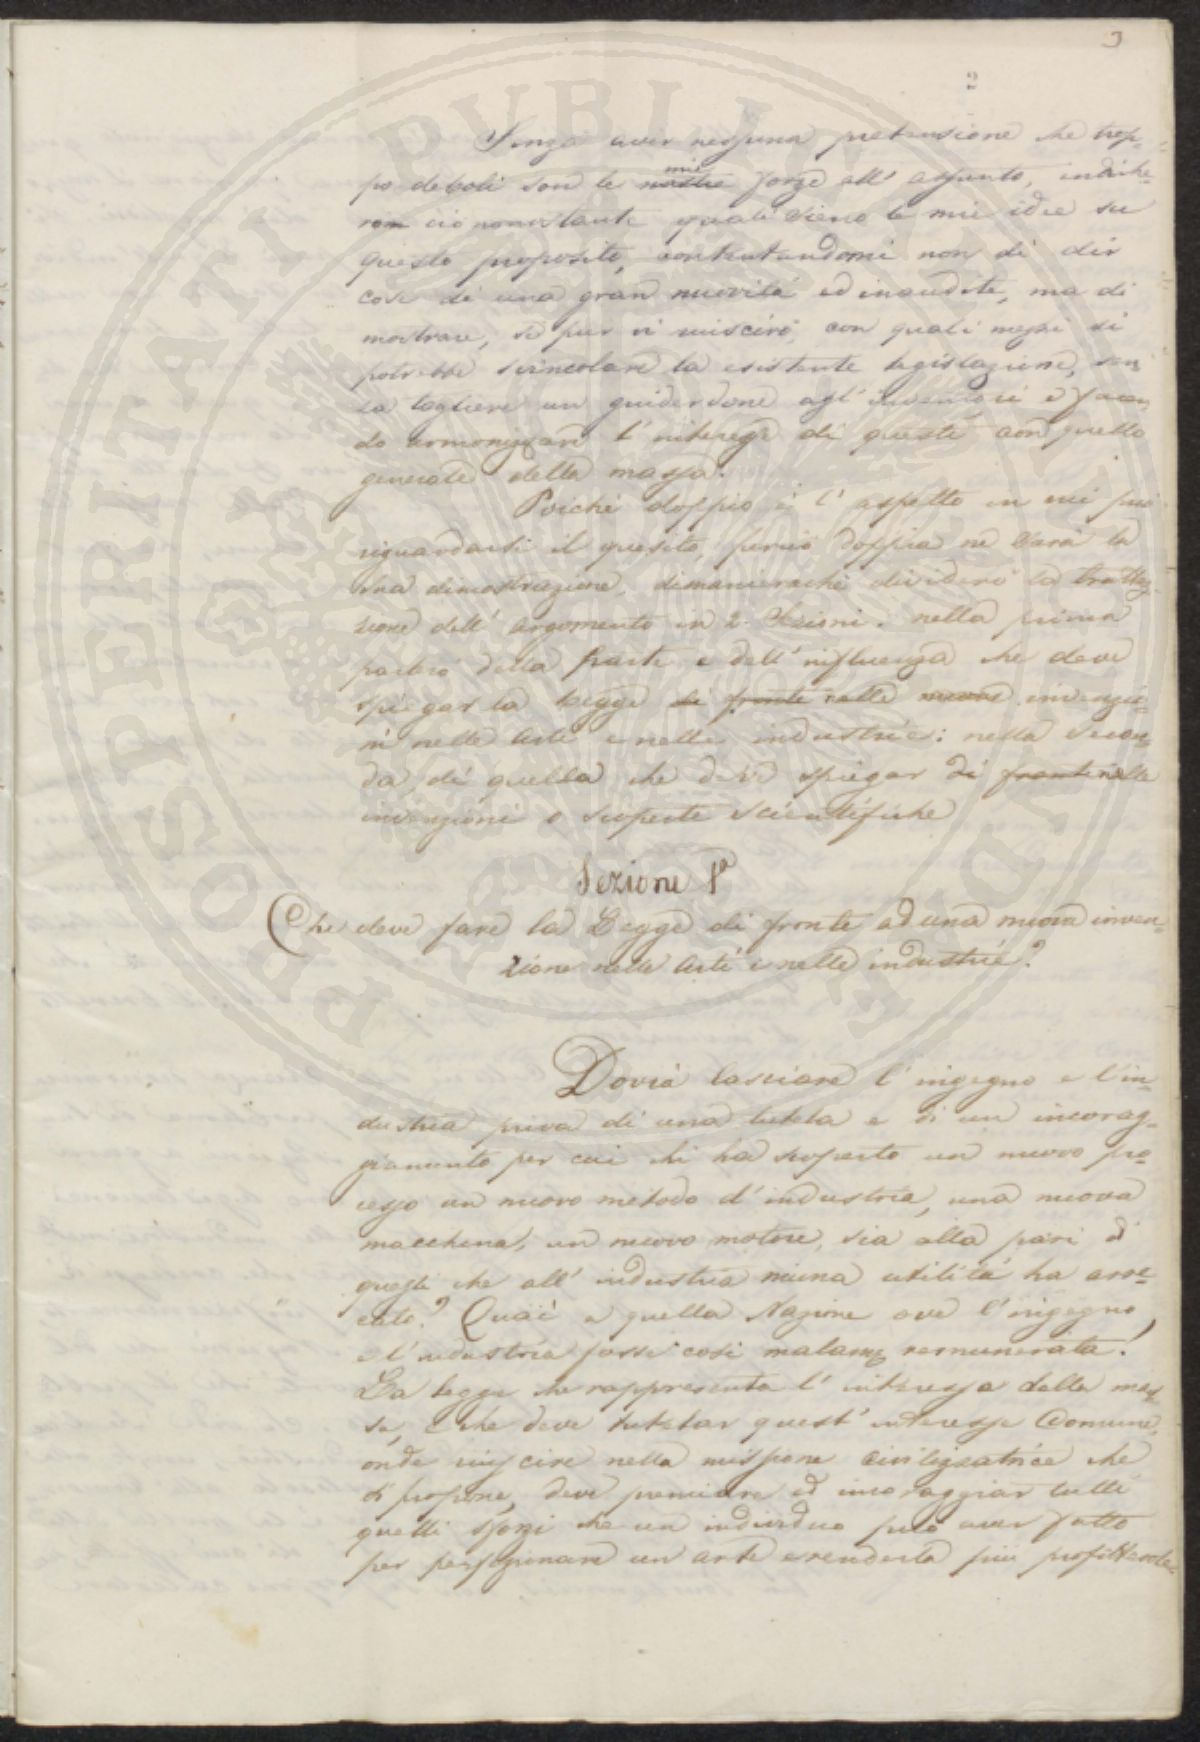 3
2
Senza aver nessuna pretensione che trop-
po deboli son le nostre mie forze all' assunto, indiche-
rem ciò nonostante quali sieno le mie idee su
questo proposito, contentandomi non di dir
cose di una gran nuovità ed inaudite, ma di
mostrare, se pur vi riuscirò, con quali mezzi si
potrebbe svincolare la esistente legislazione, sen
za togliere un guiderdone agl' inventori e facen
do armonizzare l' interesse di questi con quello
generale della massa.
Poichè doppio è l' aspetto in cui può
riguardarsi il quesito, perciò doppia ne sarà la
dimostrazione, dimanierachè dividerò la trattaz
zione dell' argomento in 2. Sezioni: nella prima
parlerò della parte e dell' influenza che deve
spiegar la Legge di fronte nelle nuove invenzio-
ni nelle arti e nelle industrie: nella secon-
da di quella che deve spiegar di fronte nelle
invenzioni o scoperte scientifiche
Sezione Iª
Che deve fare la Legge di fronte ad una nuova inven-
zione nelle arti e nelle industrie?
Dovrà lasciare l' ingegno e l' in-
dustria priva di una tutela e di un incorag-
giamento per cui chi ha scoperto un nuovo pro-
cesso un nuovo metodo d' industria, una nuova
macchina, un nuovo motore, sia alla pari di
quegli che all' industria niuna utilità ha arre-
cato? Guai a quella Nazione ove l' ingegno,
e l' industria fosse così malamte remunerata!
La legge che rappresenta l' interesse della mas-
sa, e che deve tutelar quest' interesse Comune,
onde riuscire nella missione civilizzatrice che
si propone, deve premiare ed incoraggiar tutti
quelli sforzi che un individuo può aver fatto
per perfezionare un arte e renderla più profittevole
PROSPERITATI PVBLICAE AVGENDAE